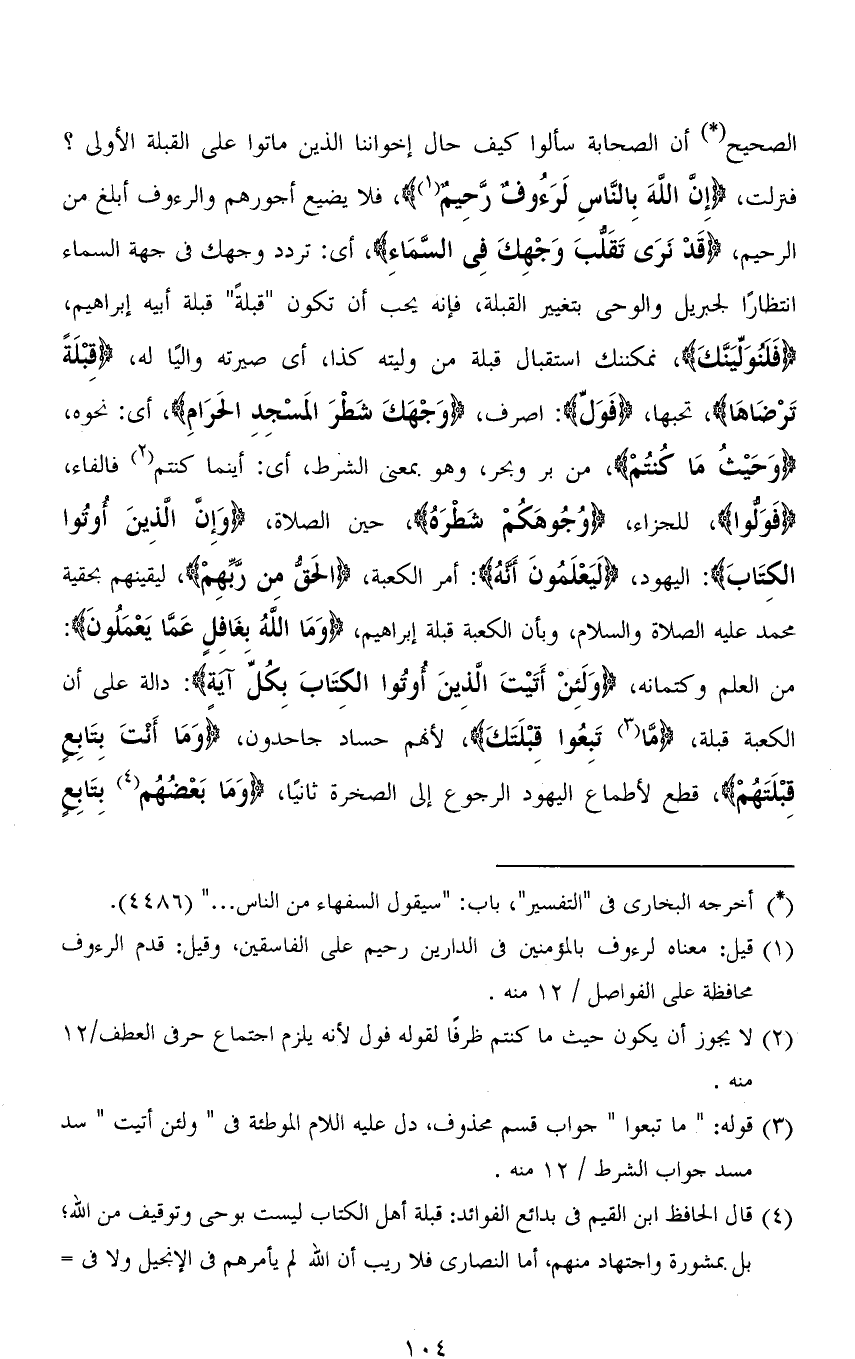 الصحيح(*) أن الصحابة سألوا كيف حال إخواننا الذين ماتوا على القبلة الأولى ؟
فنزلت، ﴿إِنَّ اللَّهَ بِالنَّاسِ لَرَءُوفٌ رَّحِيمٌ(١)﴾، فلا يضيع أجورهم والرءوف أبلغ من
الرحيم، ﴿قَدْ نَرَى تَقَلُّبَ وَجْهِكَ فِى السَّمَاءِ﴾، أى: تردد وجهك فى جهة السماء
انتظارًا لجبريل والوحى بتغيير القبلة، فإنه يحب أن تكون "قبلةً" قبلة أبيه إبراهيم،
﴿فَلَنُوَلِّيَنَّكَ﴾، نمكننك استقبال قبلة من وليته كذا، أى صيرته واليًا له، ﴿قِبْلَةً
تَرْضَاهَا﴾، تحبها، ﴿فَوَلِّ﴾: اصرف، ﴿وَجْهَكَ شَطْرَ المَسْجِدِ الحَرَامِ﴾، أى: نحوه،
﴿وَحَيْثُ مَا كُنتُمْ﴾، من بر وبحر، وهو بمعنى الشرط، أى: أينما كنتم(٢) فالفاء،
﴿فَوَلُّوا﴾، للجزاء، ﴿وُجُوهَكُمْ شَطْرَهُ﴾، حين الصلاة، ﴿وَإِنَّ الَّذِينَ أُوتُوا
الكِتَابَ﴾: اليهود، ﴿لَيَعْلَمُونَ أَنَّهُ﴾: أمر الكعبة، ﴿الحَقُّ مِن رَّبِّهِمْ﴾، ليقينهم بحقية
محمد عليه الصلاة والسلام، وبأن الكعبة قبلة إبراهيم، ﴿وَمَا اللَّهُ بِغَافِلٍ عَمَّا يَعْمَلُونَ﴾:
من العلم وكتمانه، ﴿وَلَئِنْ أَتَيْتَ الَّذِينَ أُوتُوا الكِتَابَ بِكُلِّ آيَةٍ﴾: دالة على أن
الكعبة قبلة، ﴿مَّا(٣) تَبِعُوا قِبْلَتَكَ﴾، لأنهم حساد جاحدون، ﴿وَمَا أَنْتَ بِتَابِعٍ
قِبْلَتَهُمْ﴾، قطع لأطماع اليهود الرجوع إلى الصخرة ثانيًا، ﴿وَمَا بَعْضُهُم(٤) بِتَابِعٍ
(*) أخرجه البخارى فى "التفسير"، باب: "سيقول السفهاء من الناس..." (٤٤٨٦).
(١) قيل: معناه لرءوف بالمؤمنين فى الدارين رحيم على الفاسقين، وقيل: قدم الرءوف
محافظة على الفواصل / ١٢ منه .
(٢) لا يجوز أن يكون حيث ما كنتم ظرفًا لقوله فول لأنه يلزم اجتماع حرفى العطف/١٢
منه .
(٣) قوله: " ما تبعوا " جواب قسم محذوف، دل عليه اللام الموطئة فى " ولئن أتيت " سد
مسد جواب الشرط / ١٢ منه .
(٤) قال الحافظ ابن القيم فى بدائع الفوائد: قبلة أهل الكتاب ليست بوحى وتوقيف من الله؛
بل بمشورة واجتهاد منهم، أما النصارى فلا ريب أن الله لم يأمرهم فى الإنجيل ولا فى =
١٠٤